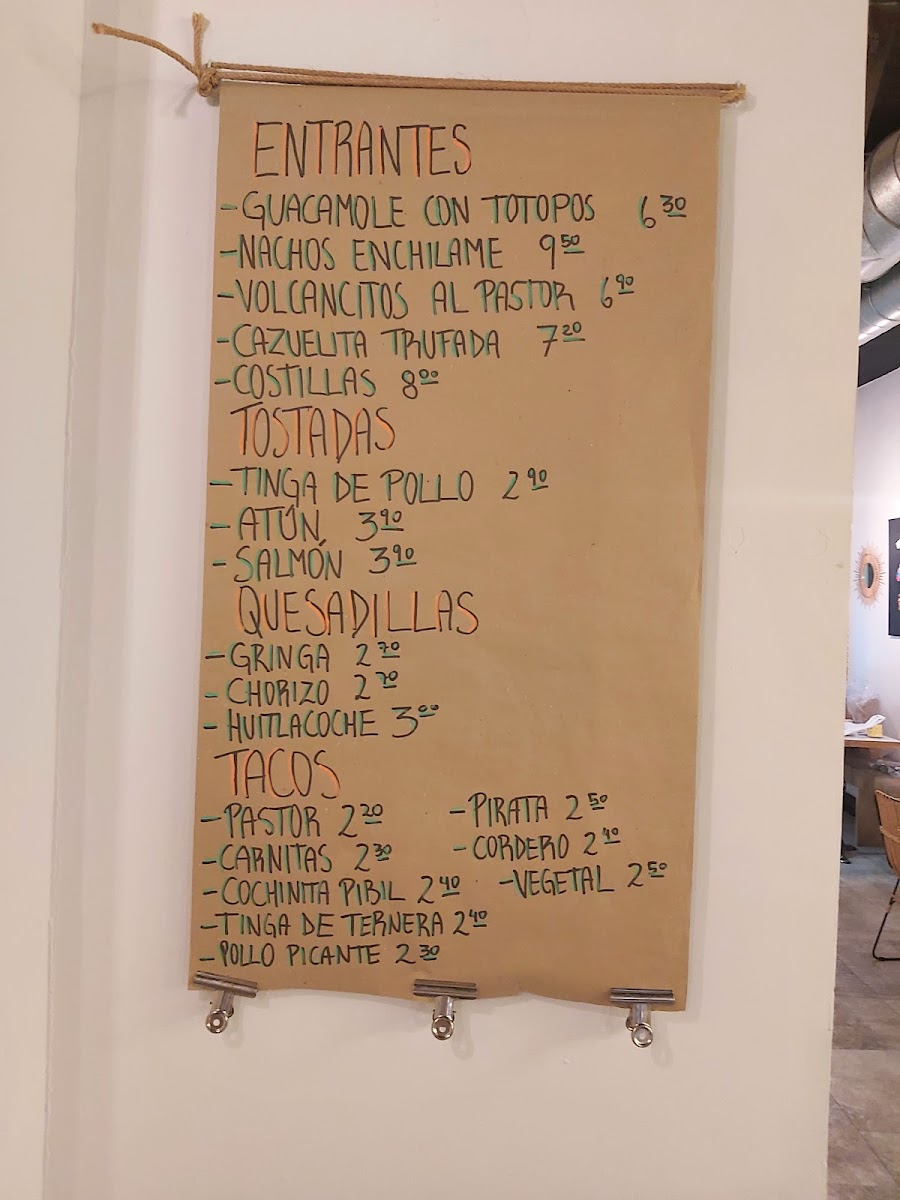 ENTRANTES
-GUACAMOLE CON TOTOPOS 6 30
-NACHOS ENCHILAME 9 50
-VOLCANCITOS AL PASTOR 6 90
-CAZUELITA TRUFADA 7 20
-COSTILLAS 8 00
TOSTADAS
-TINGA DE POLLO 2 90
-ATÚN 3 90
-SALMÓN 3 90
QUESADILLAS
-GRINGA 2 70
-CHORIZO 2 70
-HUITLACOCHE 3 00
TACOS
-PASTOR 2 20
-CARNITAS 2 30
-COCHINITA PIBIL 2 40
-TINGA DE TERNERA 2 40
-POLLO PICANTE 2 30
-PIRATA 2 50
-CORDERO 2 40
-VEGETAL 2 50